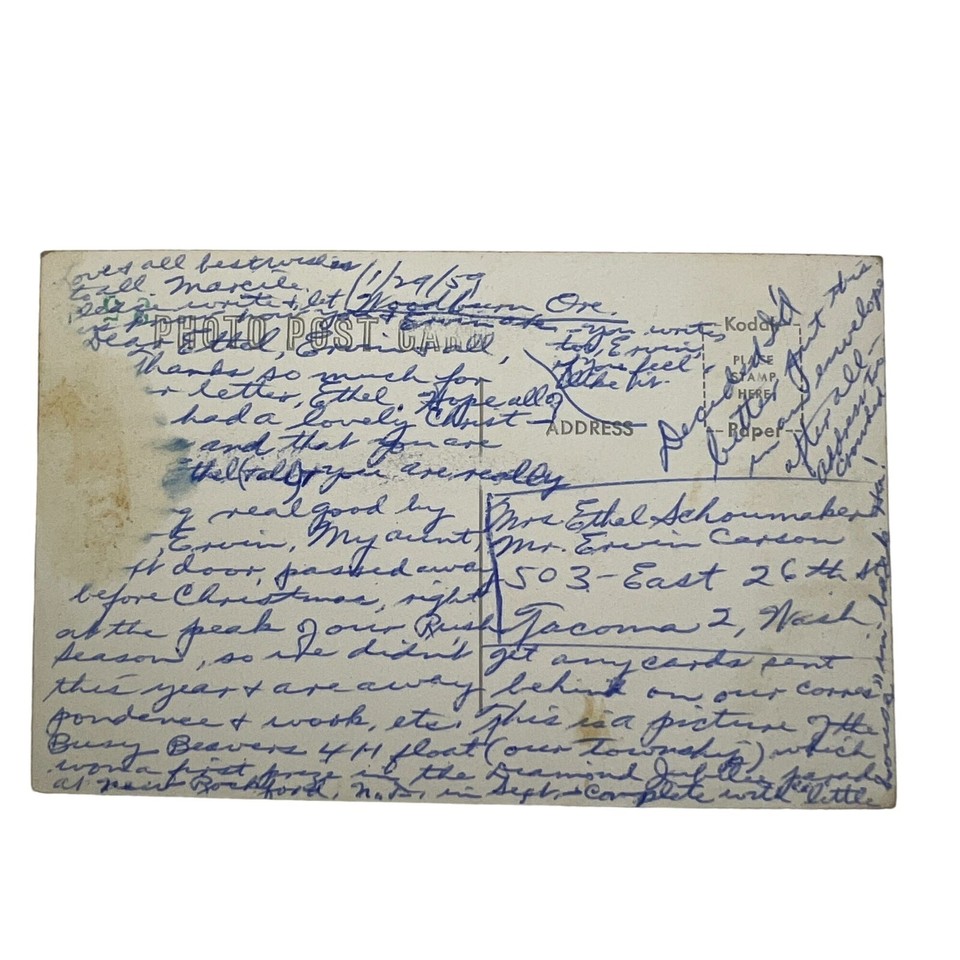 1/29/59
Woodburn, Ore.
Dear Ethel, Erwin & all,
Thanks so much for
r letter, Ethel. Hope all of
had a lovely Christ-
and that you are
really
g real good by
, Erwin. My aunt,
t door, passed away
before Christmas, right
at the peak of our Rush
Season, so we didn't get any cards sent
this year & are away behind on our corres-
pondence & work, etc. This is a picture of the
Busy Beavers 4H float (our township) which
won a first prize in the Diamond Jubilee parade
at New Rockford, N.D., in Sept. - complete with little
Love & all best wishes
to all. Marcile.
write & let
you write
to Erwin
if you feel
like it.
PHOTO POST CARD
ADDRESS
Kodak
PLACE
STAMP
HERE
Paper
Decided I'd
better put this
in an envelope
after all -
address too
Mrs. Ethel Schoumaker
Mr. Erwin Carson
503 - East 26th St
Tacoma 2, Wash.